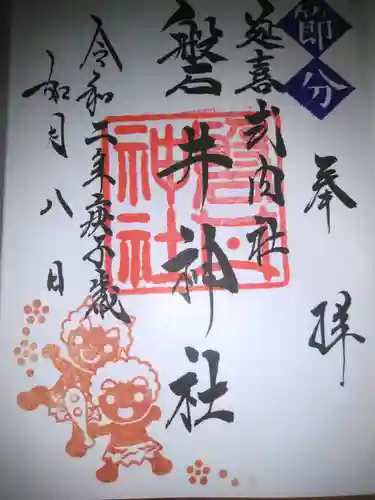 節分
奉拝
延喜式内社
磐井神社
令和二年庚子歳
如月八日
磐井
神社